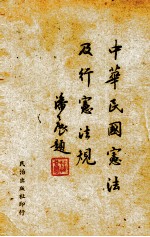 中華民國憲法
及行憲法規
民治出版社印行